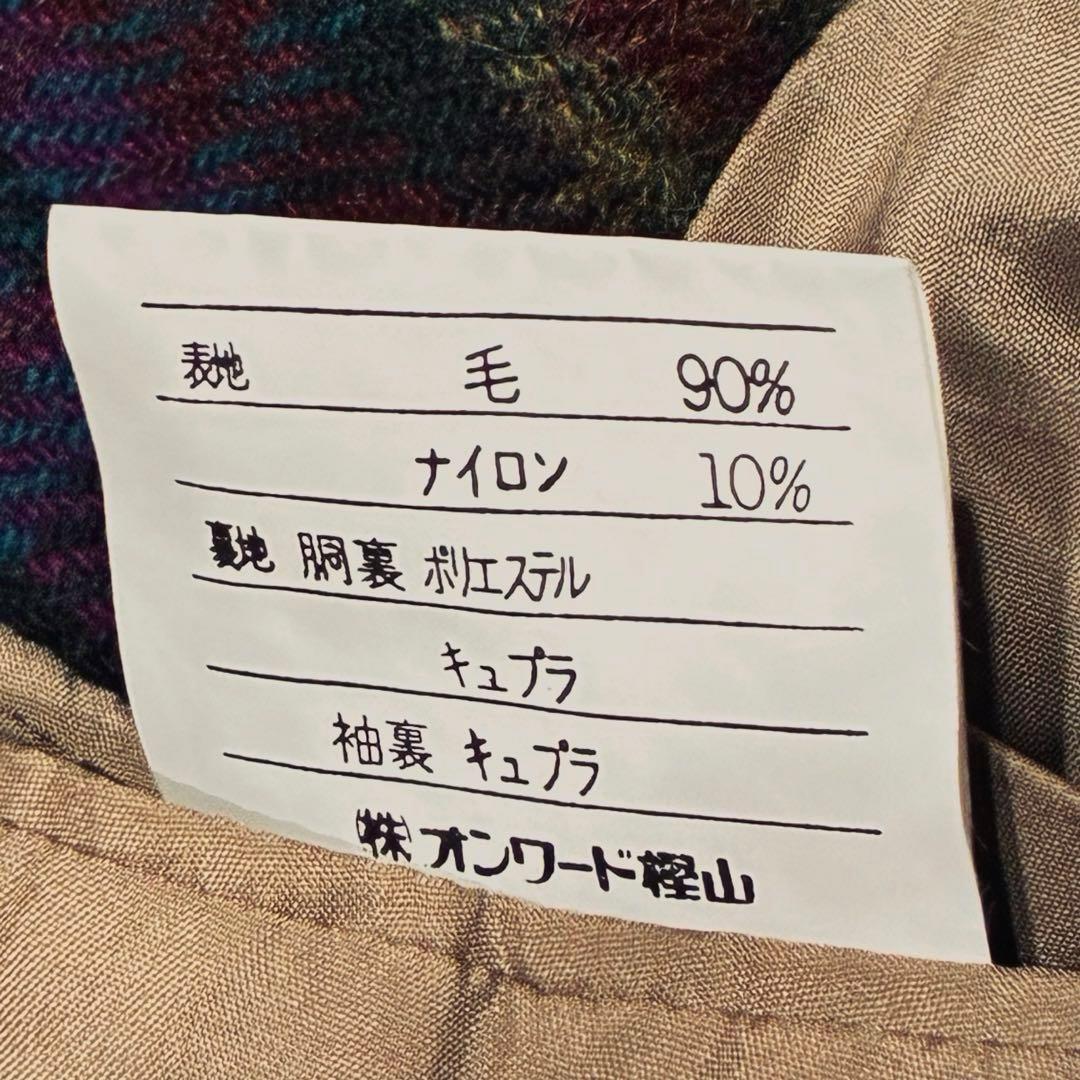 表地 毛 90%
ナイロン 10%
裏地 胴裏 ポリエステル
キュプラ
袖裏 キュプラ
(株)オンワード樫山